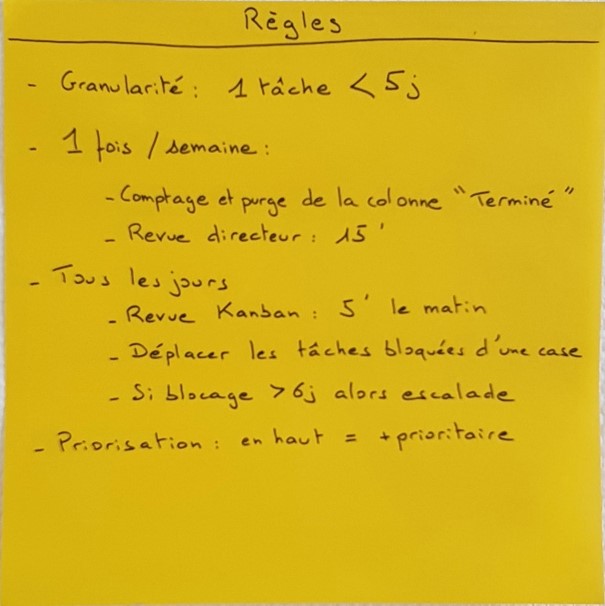 Règles
- Granularité : 1 tâche < 5j
- 1 fois / semaine :
- Comptage et purge de la colonne "Terminé"
- Revue directeur : 15'
- Tous les jours
- Revue Kanban : 5' le matin
- Déplacer les tâches bloquées d'une case
- Si blocage > 6j alors escalade
- Priorisation : en haut = + prioritaire